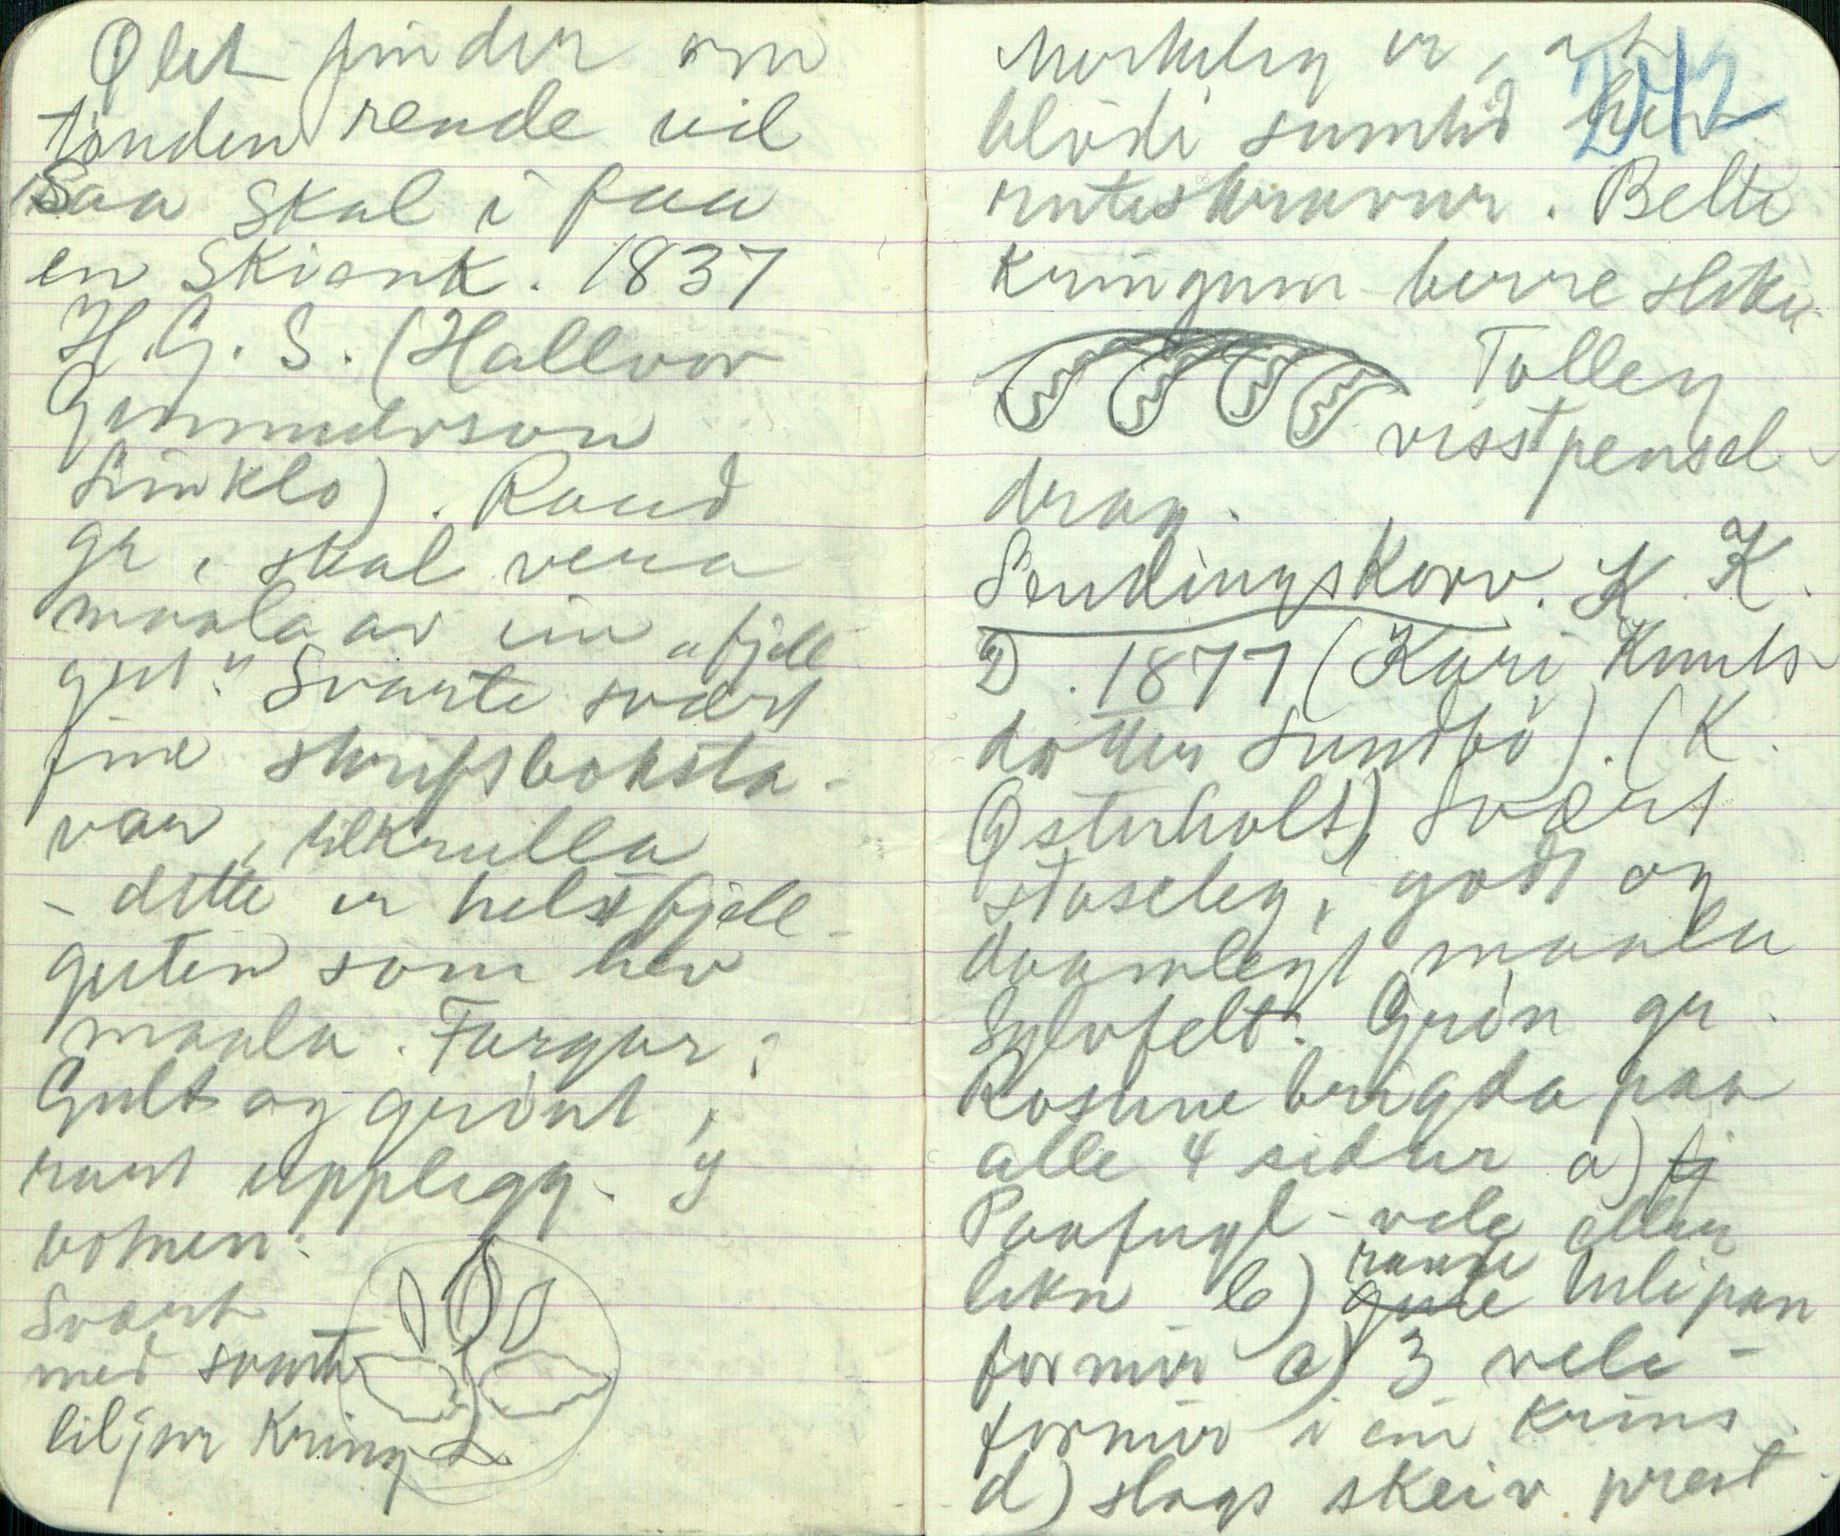 Ølet finder om
tønden rende vil
Saa Skal i faa
en Skiænk. 1837
H. G. S. (Hallvor
Gunnuldson
). Raud
gr, skal vera
maala av ein "fjell
gut". Svarte svært
fine skriftboksta-
var, tilkrulla
- dette er helst fjell-
guten som hev
maala. Fargar;
Gult og grønt,
raut upplegg. I
botnen:
Svart
med svarte
liljur kring
Merkeleg er, at
blødi sumtid hev
ruteskravur. Belte
kringum berre slike
Talleg
visst pensel-
drag.
Sendingskorv. K. K.
D. 1877 (Kari Knuts-
dotter Sundbø). (K.
Østerholt) Svært
staseleg, godt og
daamlegt maala
Sylvfelt. Grøn gr.
Rosune brigda paa
alle 4 sidur a) fj
Paafugl-vele eller
likn b) gule raude tulipan
formur c) 3 vele-
formur i ein krins
d) slags skeiv prest
242